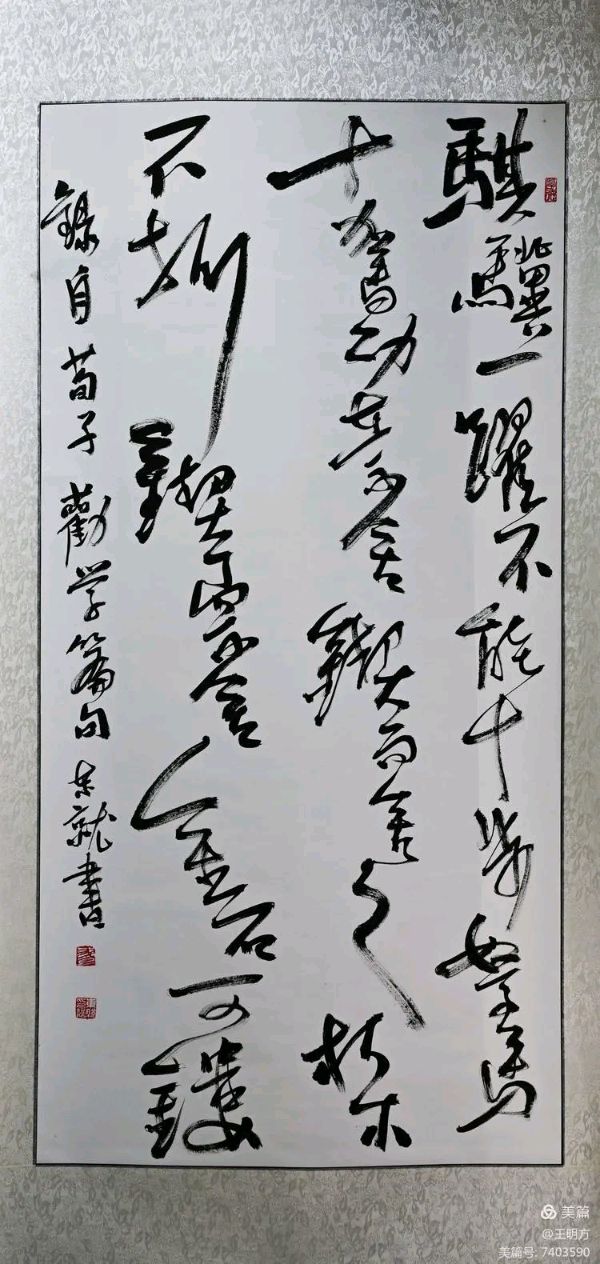 騏驥一躍不能十步駑馬
十駕功在不舍鍥而舍之朽木
不折鍥而不舍金石可鏤
錄自荀子勸学篇句东就書
美篇
@王明方
美篇号: 7403590